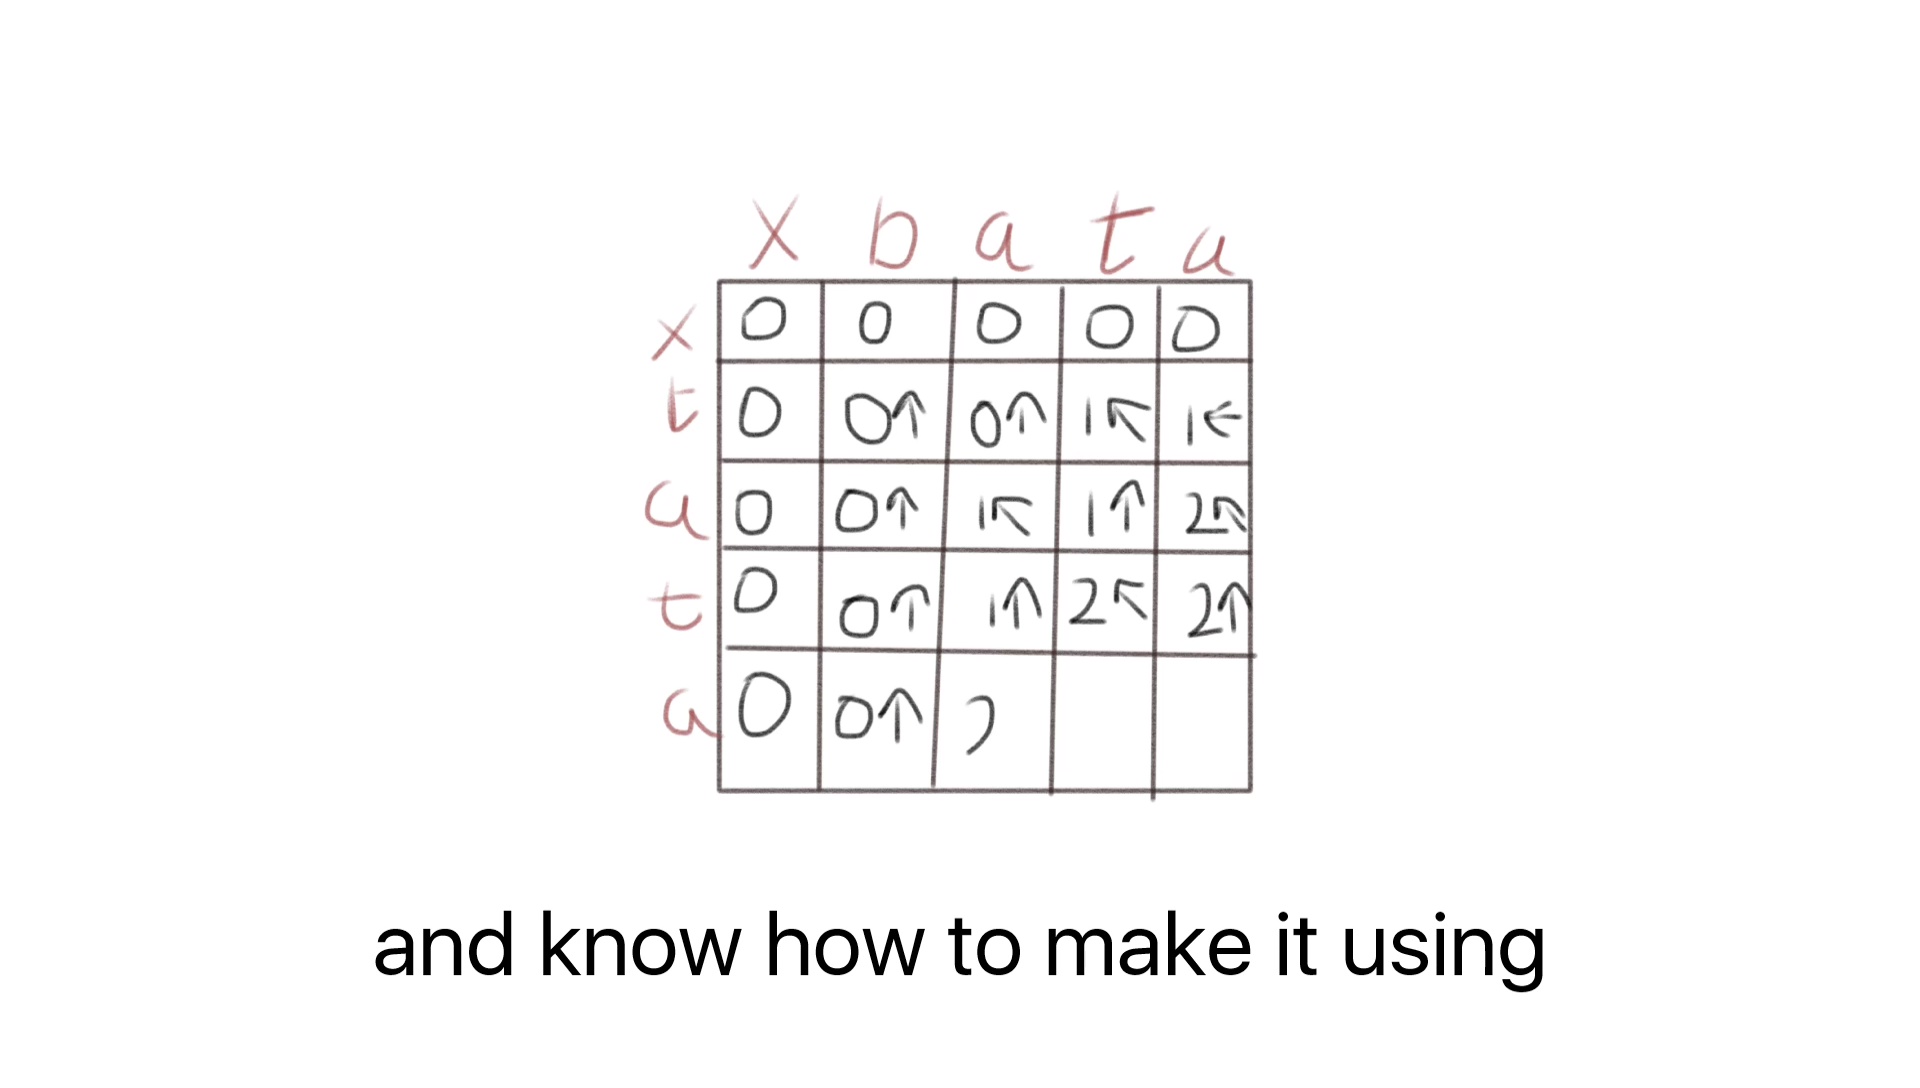 x b a t a
x 0 0 0 0 0
t 0 0↑ 0↑ 1↖ 1←
a 0 0↑ 1↖ 1↑ 2↖
t 0 0↑ 1↑ 2↖ 2↑
a 0 0↑
and know how to make it using